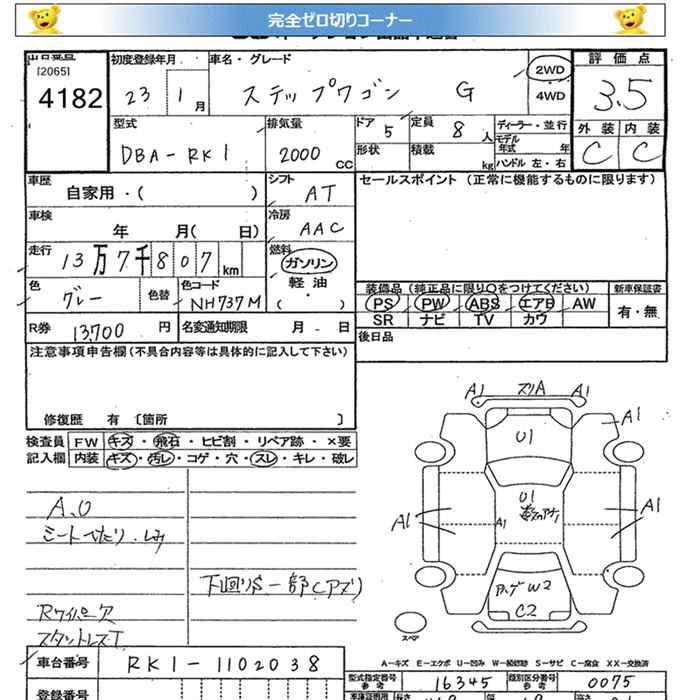 完全ゼロ切りコーナー
[2065]
4182
初度登録年月
23 1月
車名・グレード
ステップワゴン G
2WD
4WD
評価点
3.5
外装 内装
C C
型式
DBA-RK1
排気量
2000 cc
ドア 5
形状
定員 8 人
積載 kg
ディーラー・並行
モデル年式 年
ハンドル 左・右
車歴
自家用・( )
シフト
AT
セールスポイント (正常に機能するものに限ります)
車検
年 月( 日)
冷房
AAC
走行
13万7千807km
燃料
ガソリン
軽油
・( )
色
グレー
色替
色コード
NH737M
装備品 (純正品に限り○をつけてください)
PS PW ABS エアB AW
SR ナビ TV カワ
新車保証書
有・無
R券 13,700円
名変通知期限 月 - 日
後日品
注意事項申告欄(不具合内容等は具体的に記入して下さい)
修復歴 有 〔箇所 〕
検査員記入欄
FW キズ・飛石・ヒビ割・リペア跡・×要
内装 キズ・汚レ・コゲ・穴・スレ・キレ・破レ
A.O
シートへたり.しみ
Rワイパー欠
下回りS一部C
A1 スリA A1
A1
U1
U1
A1 A1 A1
W2
C2
スペア
A-キズ E-エクボ U-凹み W-補修跡 S-サビ C-腐食 XX-交換済
車台番号
RK1-1102038
型式指定番号 参考
16345
類別区分番号 参考
0075
登録番号
長さ
幅
高さ